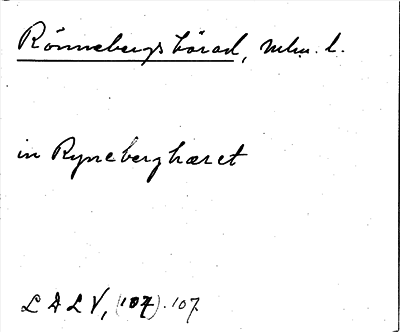 Rönnebergs härad, Mlm. l.
in Ryneberghæret
L D L V, (107). 107